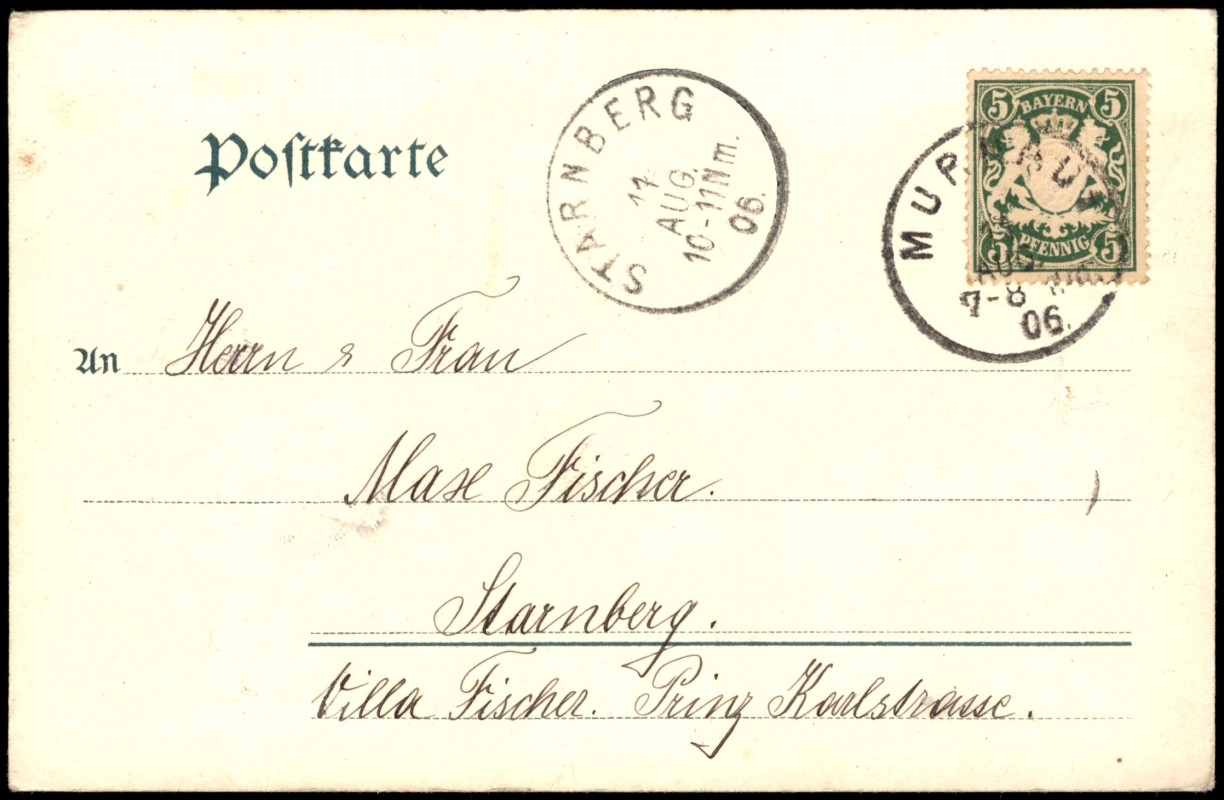 Postkarte
STARNBERG
11.
AUG.
10-11 Nm.
06.
5 BAYERN 5
5 PFENNIG 5
AUG.
7-8
06.
An Herrn & Frau
Max Fischer.
Starnberg.
Villa Fischer. Prinz Karlstrasse.